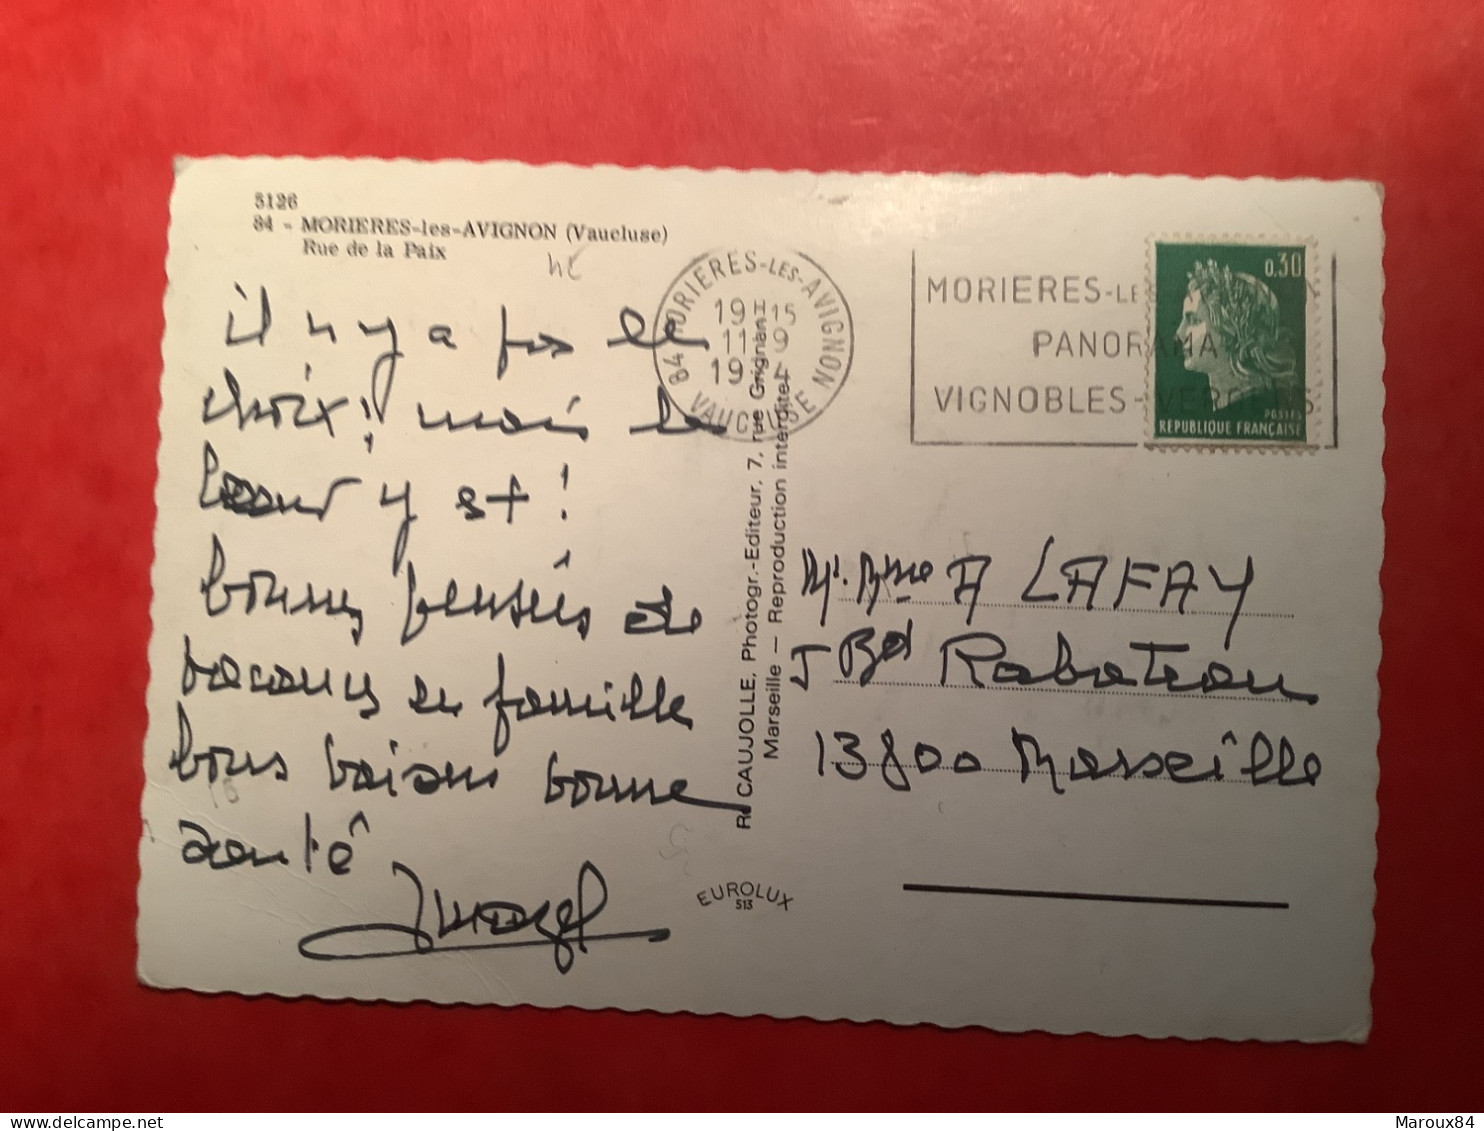 5126
84 - MORIERES-les-AVIGNON (Vaucluse)
Rue de la Paix
il n y a pas le
choix! mais le
Coeur y est!
bonnes pensées de
vacances en famille
bons baisers bonne
santé
84 MORIERES-LES-AVIGNON
19H15
11-9
19 4
VAUCLUSE
MORIERES-LE
PANORAMA
VIGNOBLES-VERGERS
0,30
POSTES
REPUBLIQUE FRANÇAISE
R. CAUJOLLE, Photogr.-Editeur, 7, rue Grignan
Marseille — Reproduction interdite
Mr. Mme A LAFAY
5 Bd Rabatau
13800 Marseille
EUROLUX
513
delcampe.net
Maroux84